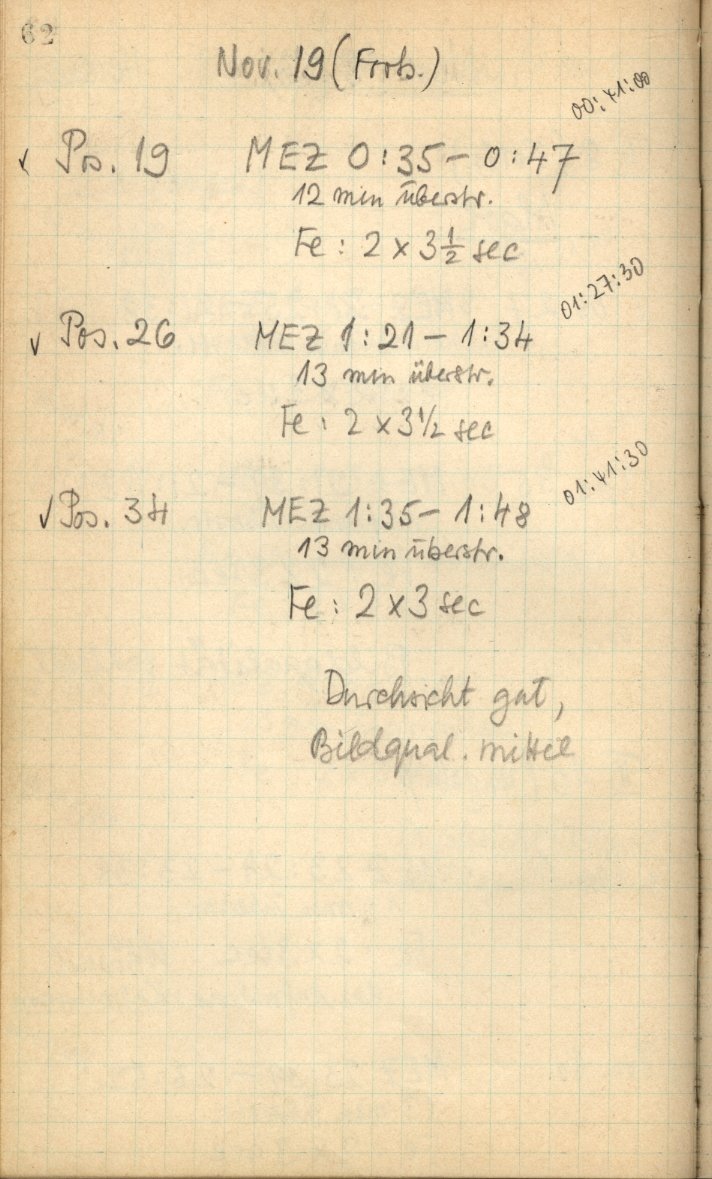 62
Nov. 19 (Forts.)
00:41:00
✓ Pos. 19 MEZ 0:35 – 0:47
12 min überstr.
Fe: 2 x 3½ sec
01:27:30
✓ Pos. 26 MEZ 1:21 – 1:34
13 min überstr.
Fe: 2 x 3½ sec
01:41:30
✓ Pos. 34 MEZ 1:35 – 1:48
13 min überstr.
Fe: 2 x 3 sec
Durchsicht gut,
Bildqual. mittel